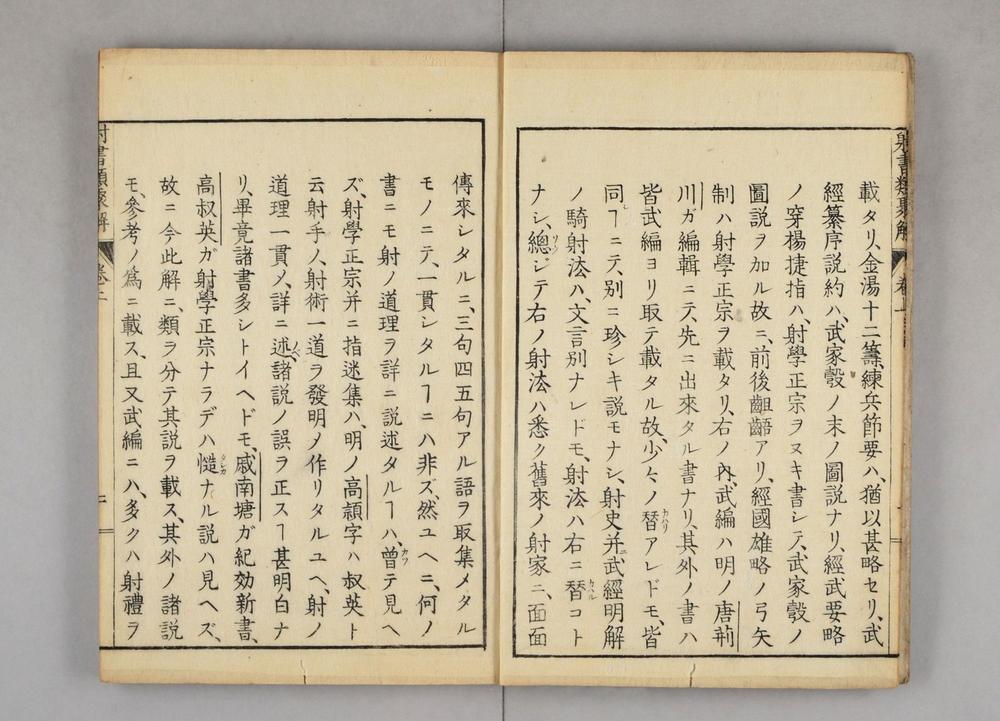 載タリ、金湯十二籌、練兵節要ハ、猶以甚略セリ、武
經纂序説約ハ、武家彀ノ末ノ圖説ナリ、經武要略
ノ穿楊捷指ハ、射學正宗ヲヌキ書シテ、武家彀ノ
圖説ヲ加ル故ニ、前後齟齬アリ、經國雄略ノ弓矢
制ハ射學正宗ヲ載タリ、右ノ内、武編ハ明ノ唐荊
川ガ編輯ニテ、先ニ出來タル書ナリ、其外ノ書ハ
皆武編ヨリ取テ載タル故、少々ノ替カハリアレドモ、皆
同シヿニテ、別ニ珍シキ説モナシ、射史并ニ武經明解
ノ騎射法ハ、文言別ナレドモ、射法ハ右ニ替カハルコト
ナシ、總ジテ右ノ射法ハ悉ク舊來ノ射家ニ、面面
射書類聚解
傳來シタルニ、三句四五句アル語ヲ取集メタル
モノニテ、一貫シタルヿニハ非ズ、然ユヘニ、何ノ
書ニモ射ノ道理ヲ詳ニ説述タルヿハ、曾カツテ見ヘ
ズ、射學正宗并ニ指迷集ハ、明ノ高頴字ハ叔英ト
云射手ノ、射術一道ヲ發明メ作リタルユヘ、射ノ
道理一貫メ、詳ニ述ノベ、諸説ノ誤ヲ正スヿ甚明白ナ
リ、畢竟諸書多シトイヘドモ、戚南塘ガ紀効新書、
高叔英ガ射學正宗ナラデハ慥タシカナル説ハ見ヘズ、
故ニ今此解ニ、類ヲ分テ其説ヲ載ス、其外ノ諸説
モ、參考ノ爲ニ載ス、且又武編ニハ、多クハ射禮ヲ
射書類聚解